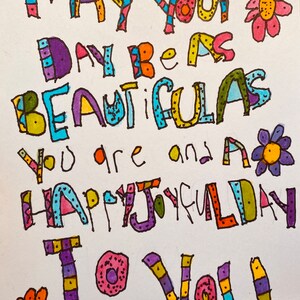 MAY YOUR
DAY BE AS
BEAUTIFUL AS
you are and A
HAPPY JOYFUL DAY
TO YOU